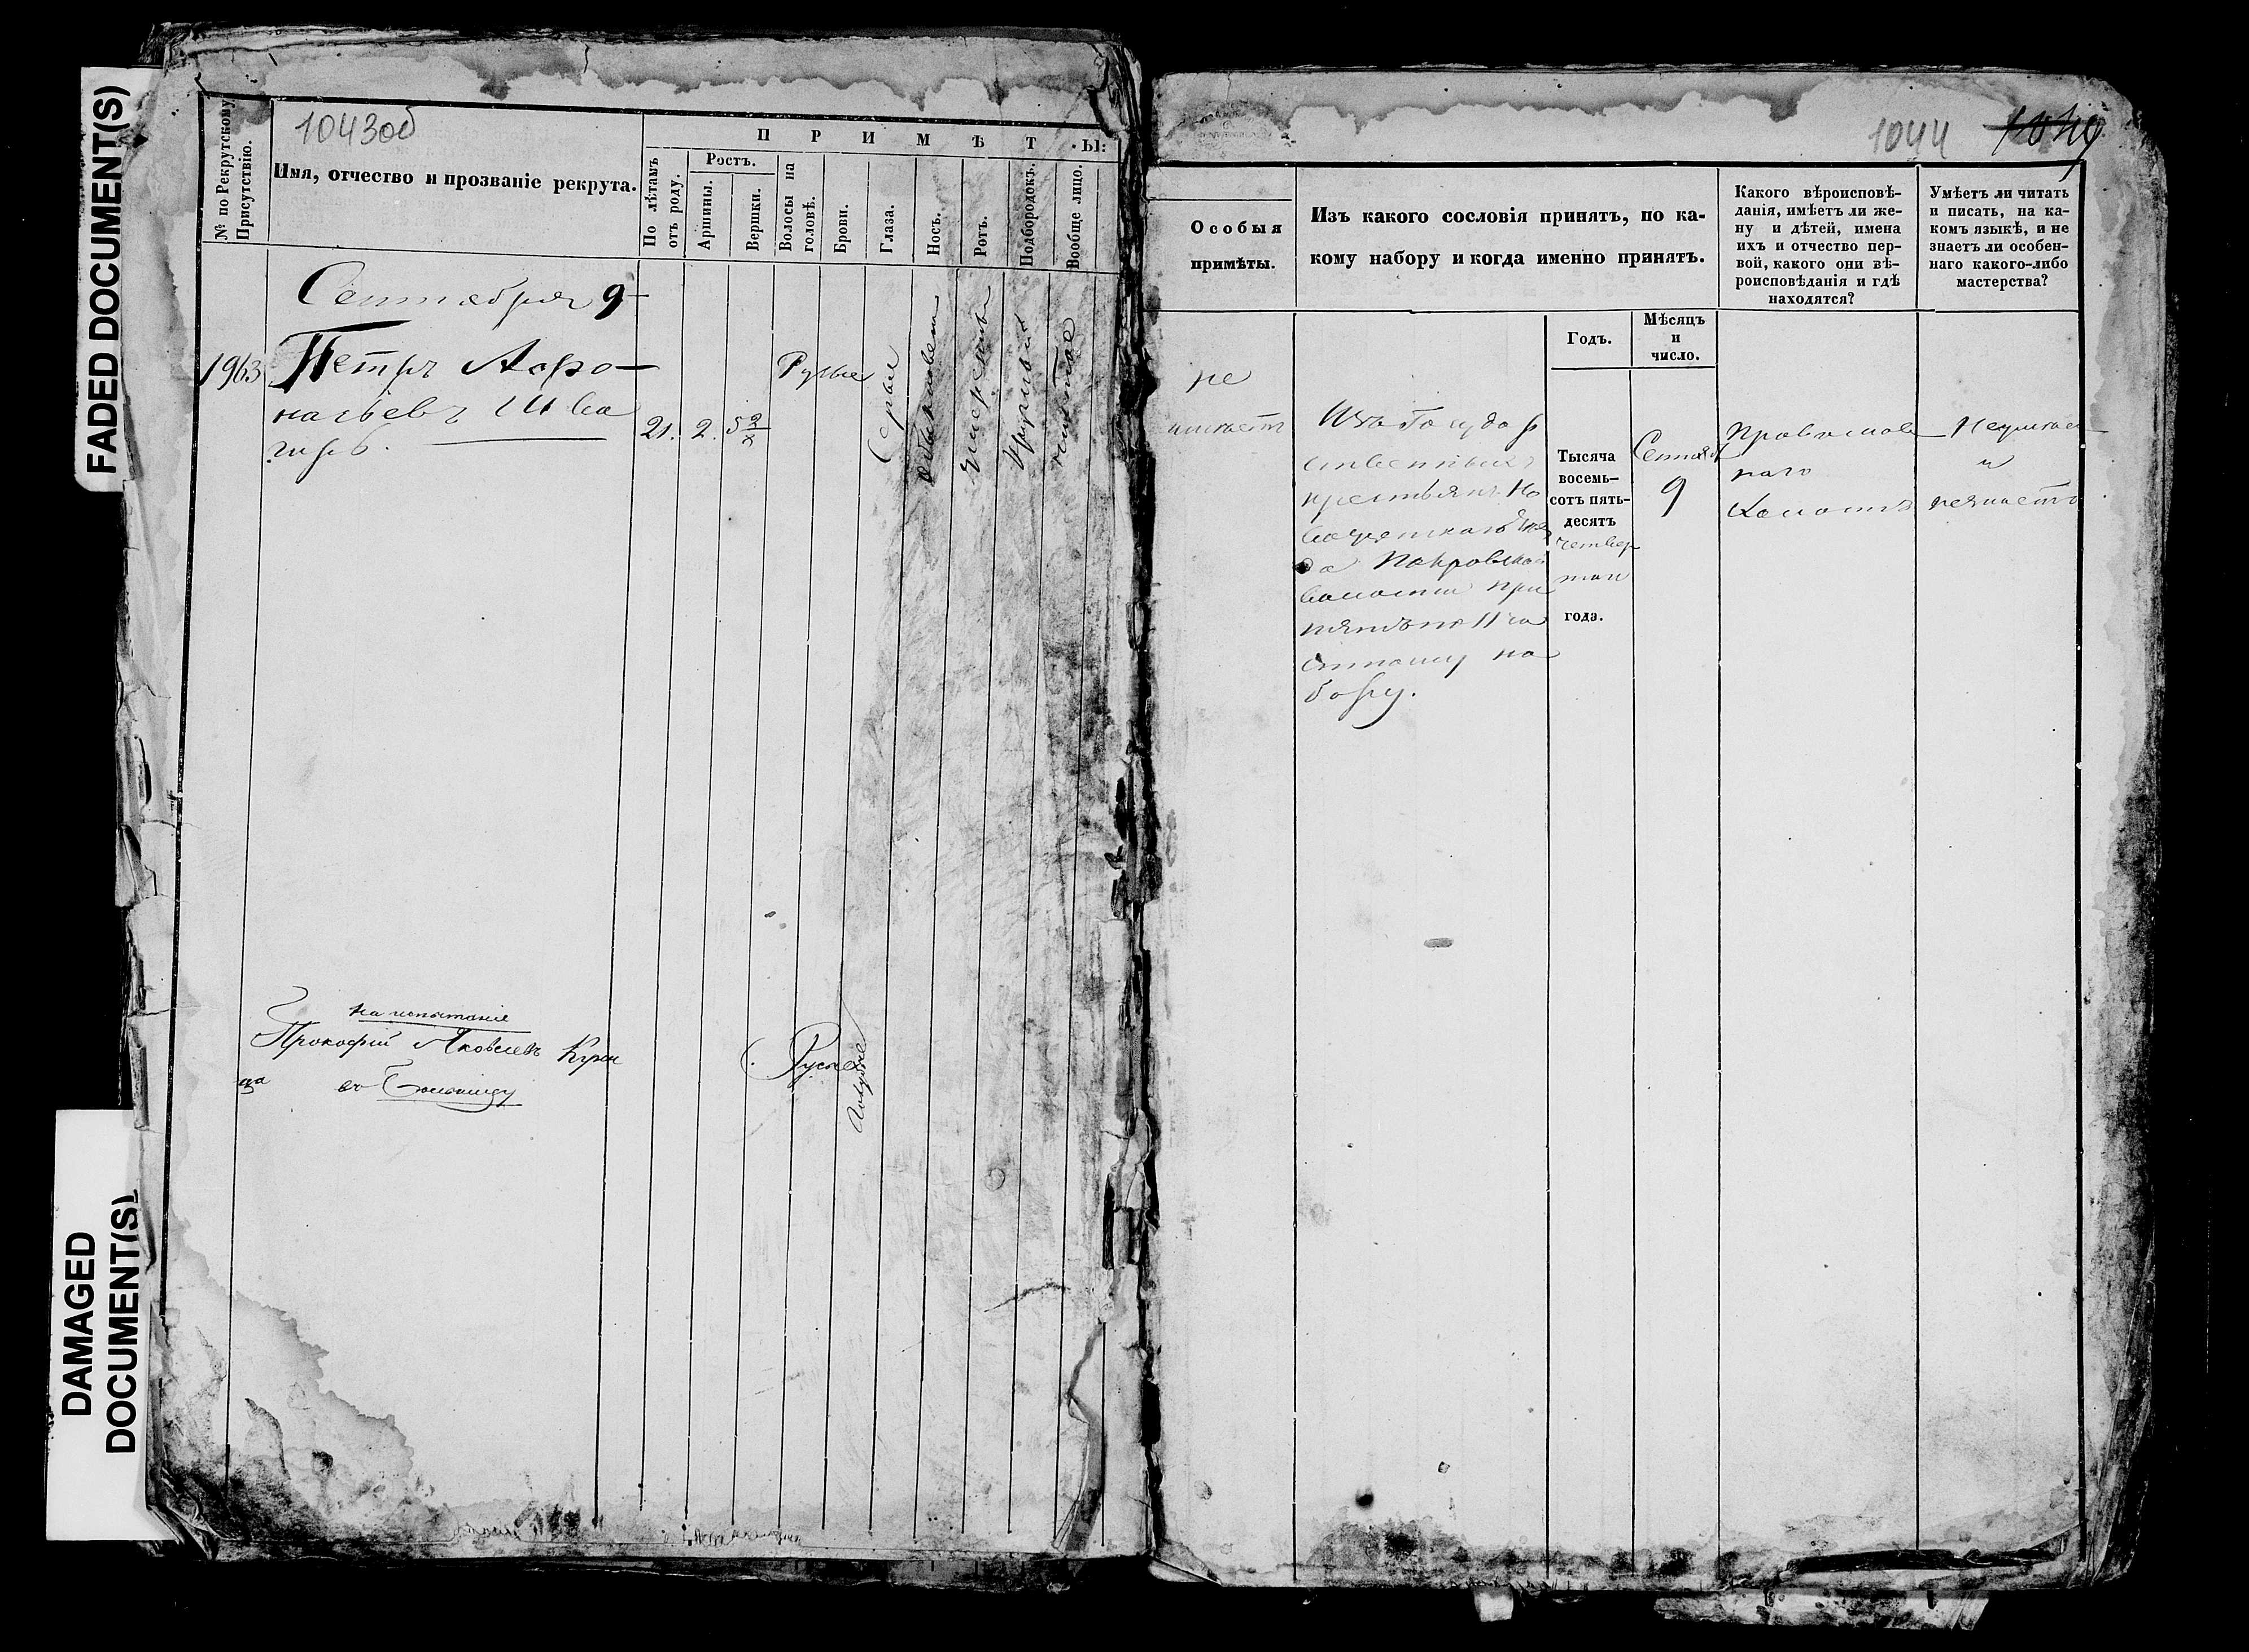 FADED DOCUMENT(S)
DAMAGED
DOCUMENT(S)
1043об
№ по Рекрутскому
Присутствію.
Имя, отчество и прозваніе рекрута.
П Р И М Ѣ Т Ы:
По лѣтамъ
отъ роду.
Ростъ.
Аршины.
Вершки.
Волосы на
головѣ.
Брови.
Глаза.
Носъ.
Ротъ.
Подбородокъ.
Вообще лицо.
Сентября 9
1963
Петръ Афо-
насьевъ
21. 2. 5
Русые
Серые
умеренный
круглый
чистое
на испытаніе
Прокофій Яковлевъ
въ больницу
Русые
голубые
1044
Особыя
примѣты.
Изъ какого сословія принятъ, по ка-
кому набору и когда именно принятъ.
Какого вѣроисповѣ-
данія, имѣетъ ли же-
ну и дѣтей, имена
ихъ и отчество пер-
вой, какого они вѣ-
роисповѣданія и гдѣ
находятся?
Умѣетъ ли читать
и писать, на ка-
комъ языкѣ, и не
знаетъ ли особен-
наго какого-либо
мастерства?
Годъ.
Мѣсяцъ
и
число.
не
имеетъ
Изъ Государ
ственныхъ
крестьянъ
Покровской
волости при
нятъ по 11 ча
стному на
бору.
Тысяча
восемь-
сотъ пять-
десятъ
четвер
таго
года.
Сентяб
9
Православ
наго
холостъ
Неумеет
и
незнаетъ